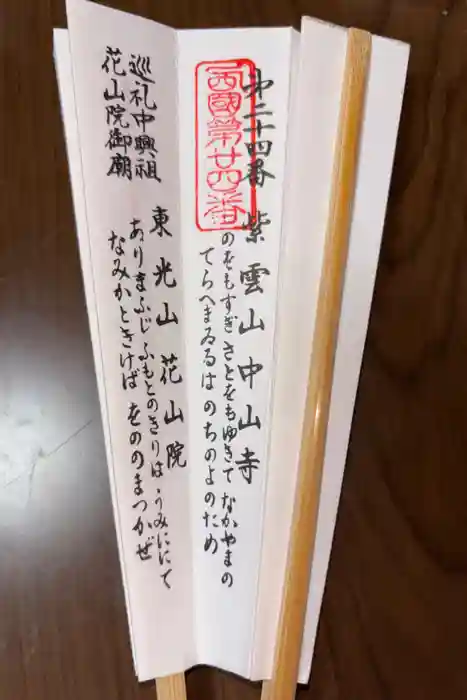 西國第廿四番
第二十四番 紫雲山中山寺
のをもすぎ さとをもゆきて なかやまの
てらへまゐるは のちのよのため
巡礼中興祖
花山院御廟
東光山 花山院
ありまふじ ふもとのきりは うみににて
なみかときけば をののまつかぜ